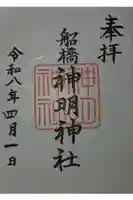 奉拝
船橋
神明神社
令和八年四月一日